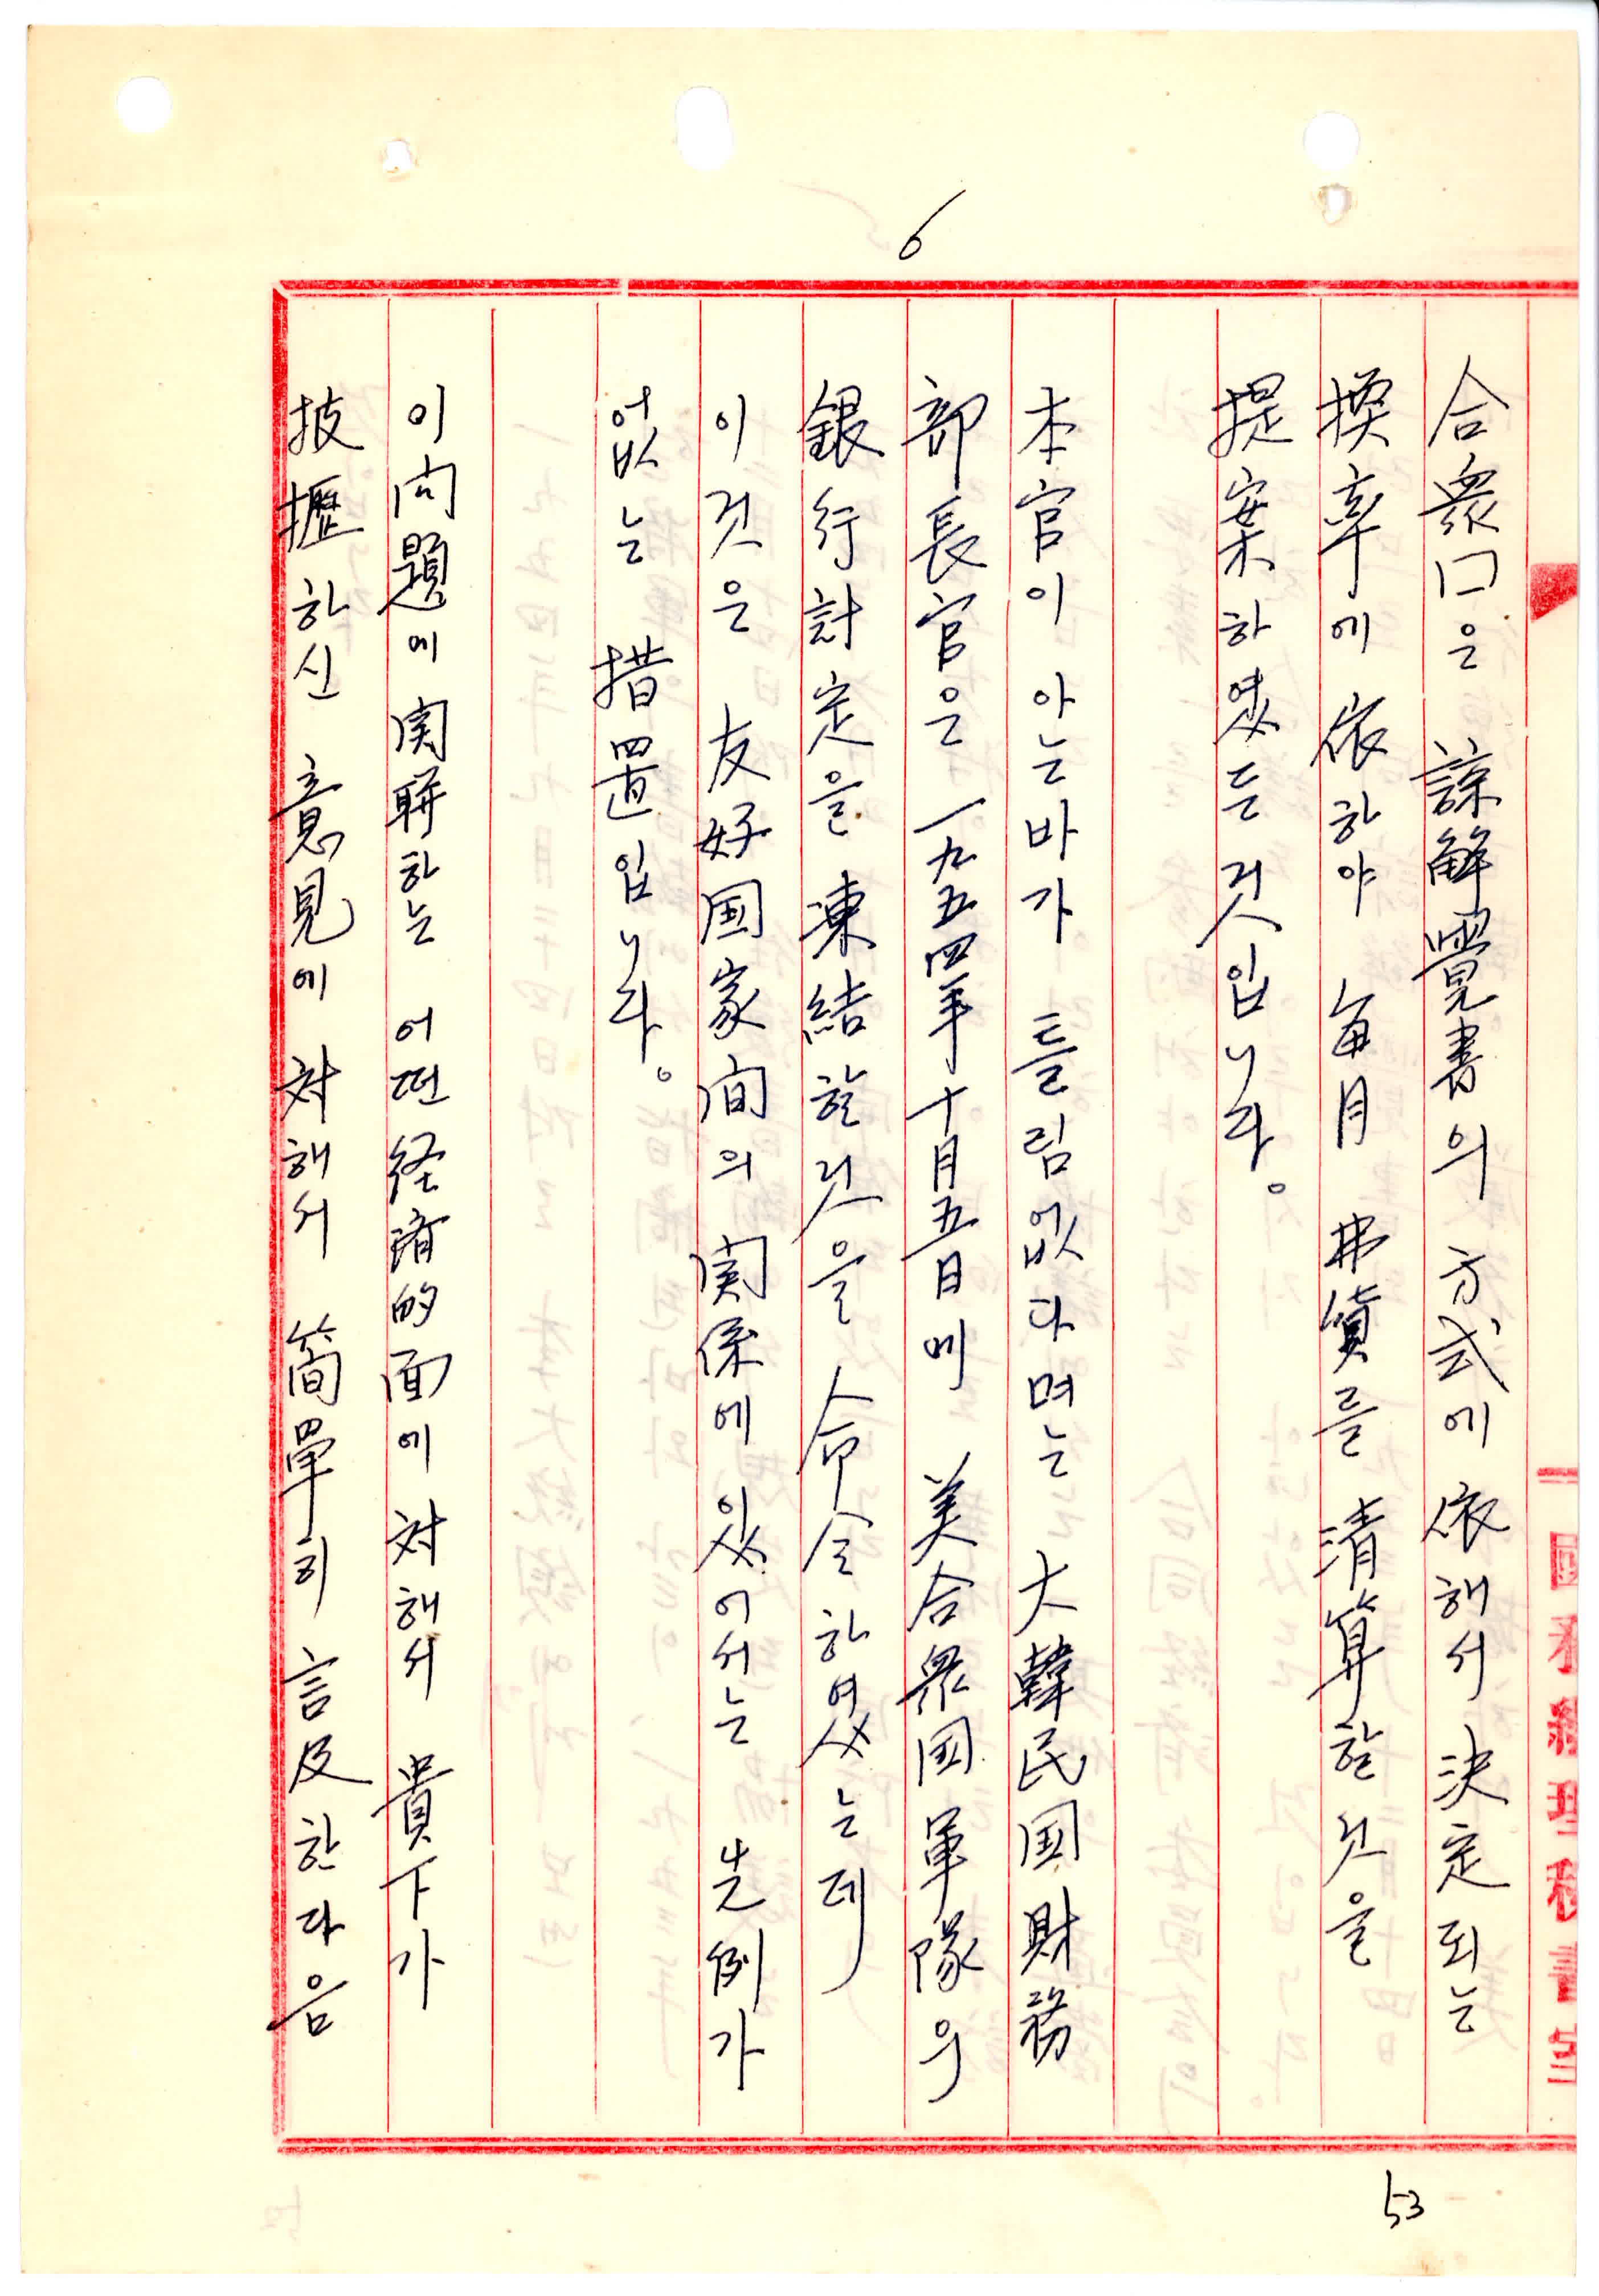 6
合衆口은 諒解覺書의 方式에 依해서 決定되는
換率에 依하야 每月 弗貨를 清算할 것을
提案하였든 것입니다。
本官이 아는바가 틀림없다며는 大韓民国財務
部長官은 一九五四年十月五日에 美合衆国軍隊의
銀行計定을 凍結할것을 命令하였는데
이것은 友好国家间의 関係에 있어서는 先例가
없는 措置입니다。
이问題에 関聯하는 어떤 经濟的面에 対해서 貴下가
披攊하신 意見에 対해서 簡單히 言及한다음
國務總理秘書室
53